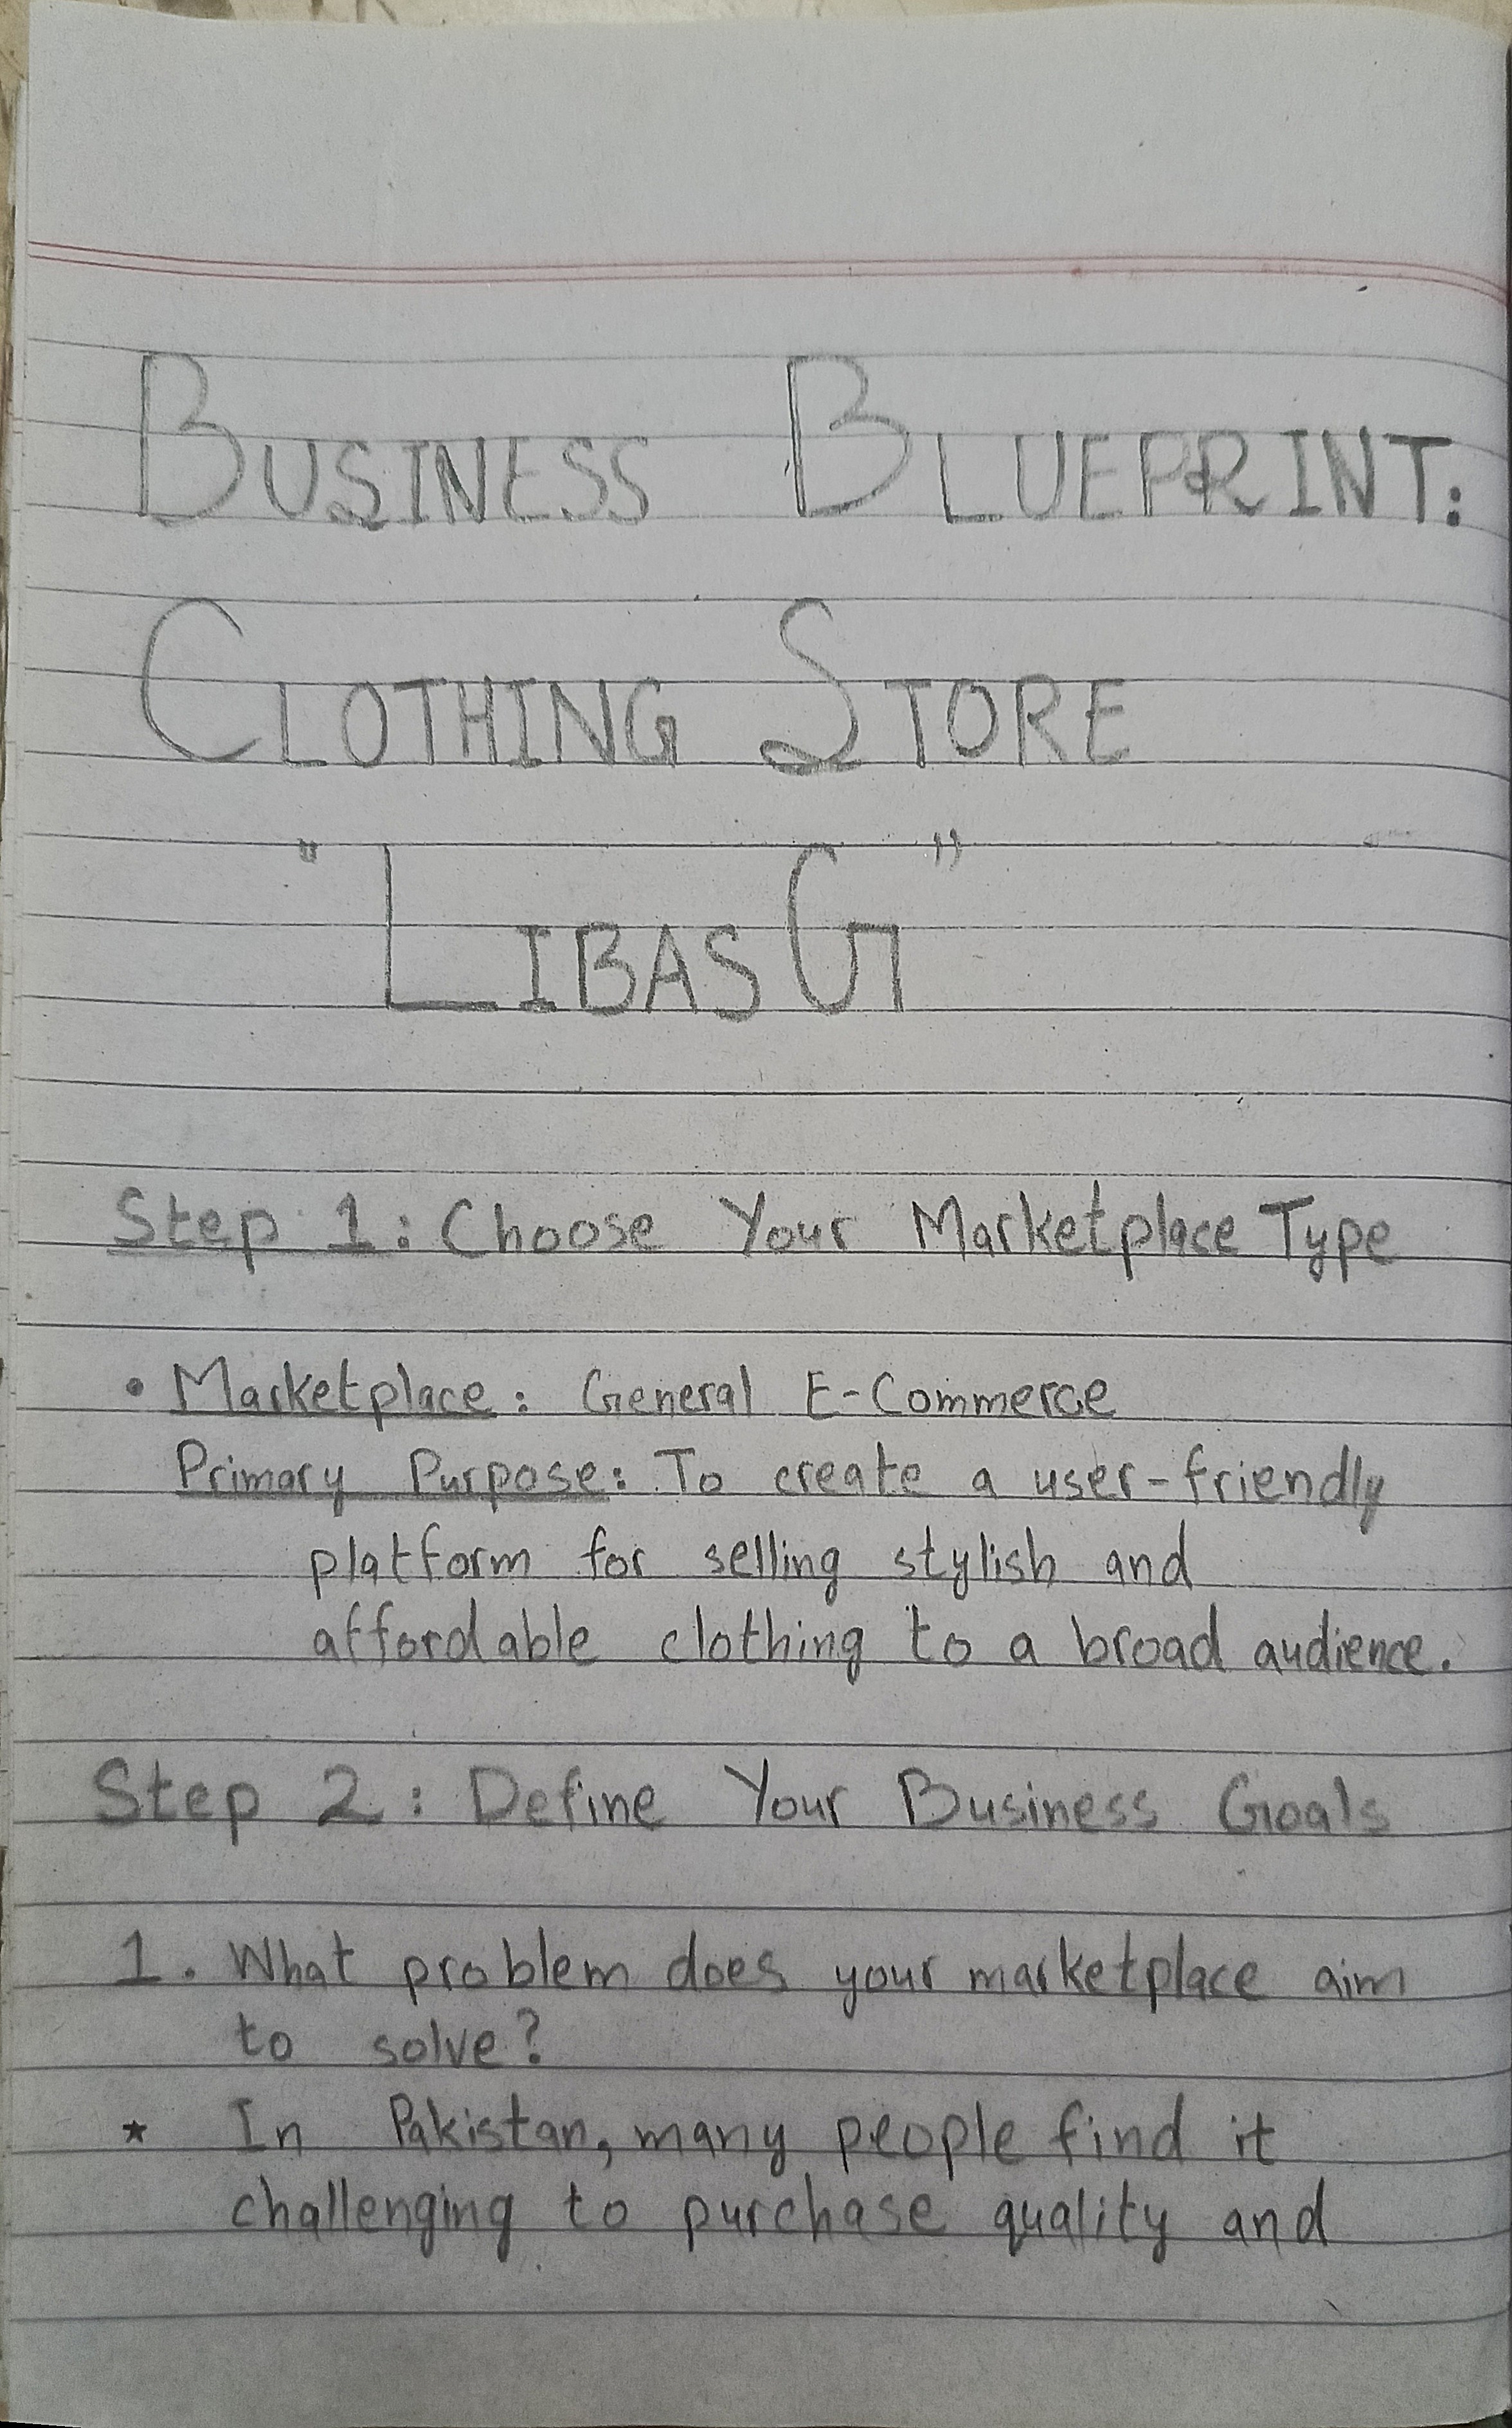 BUSINESS BLUEPRINT:
CLOTHING STORE
"LIBASG"
Step 1: Choose Your Marketplace Type
• Marketplace: General E-Commerce
Primary Purpose: To create a user-friendly
platform for selling stylish and
affordable clothing to a broad audience.
Step 2: Define Your Business Goals
1. What problem does your marketplace aim
to solve?
* In Pakistan, many people find it
challenging to purchase quality and